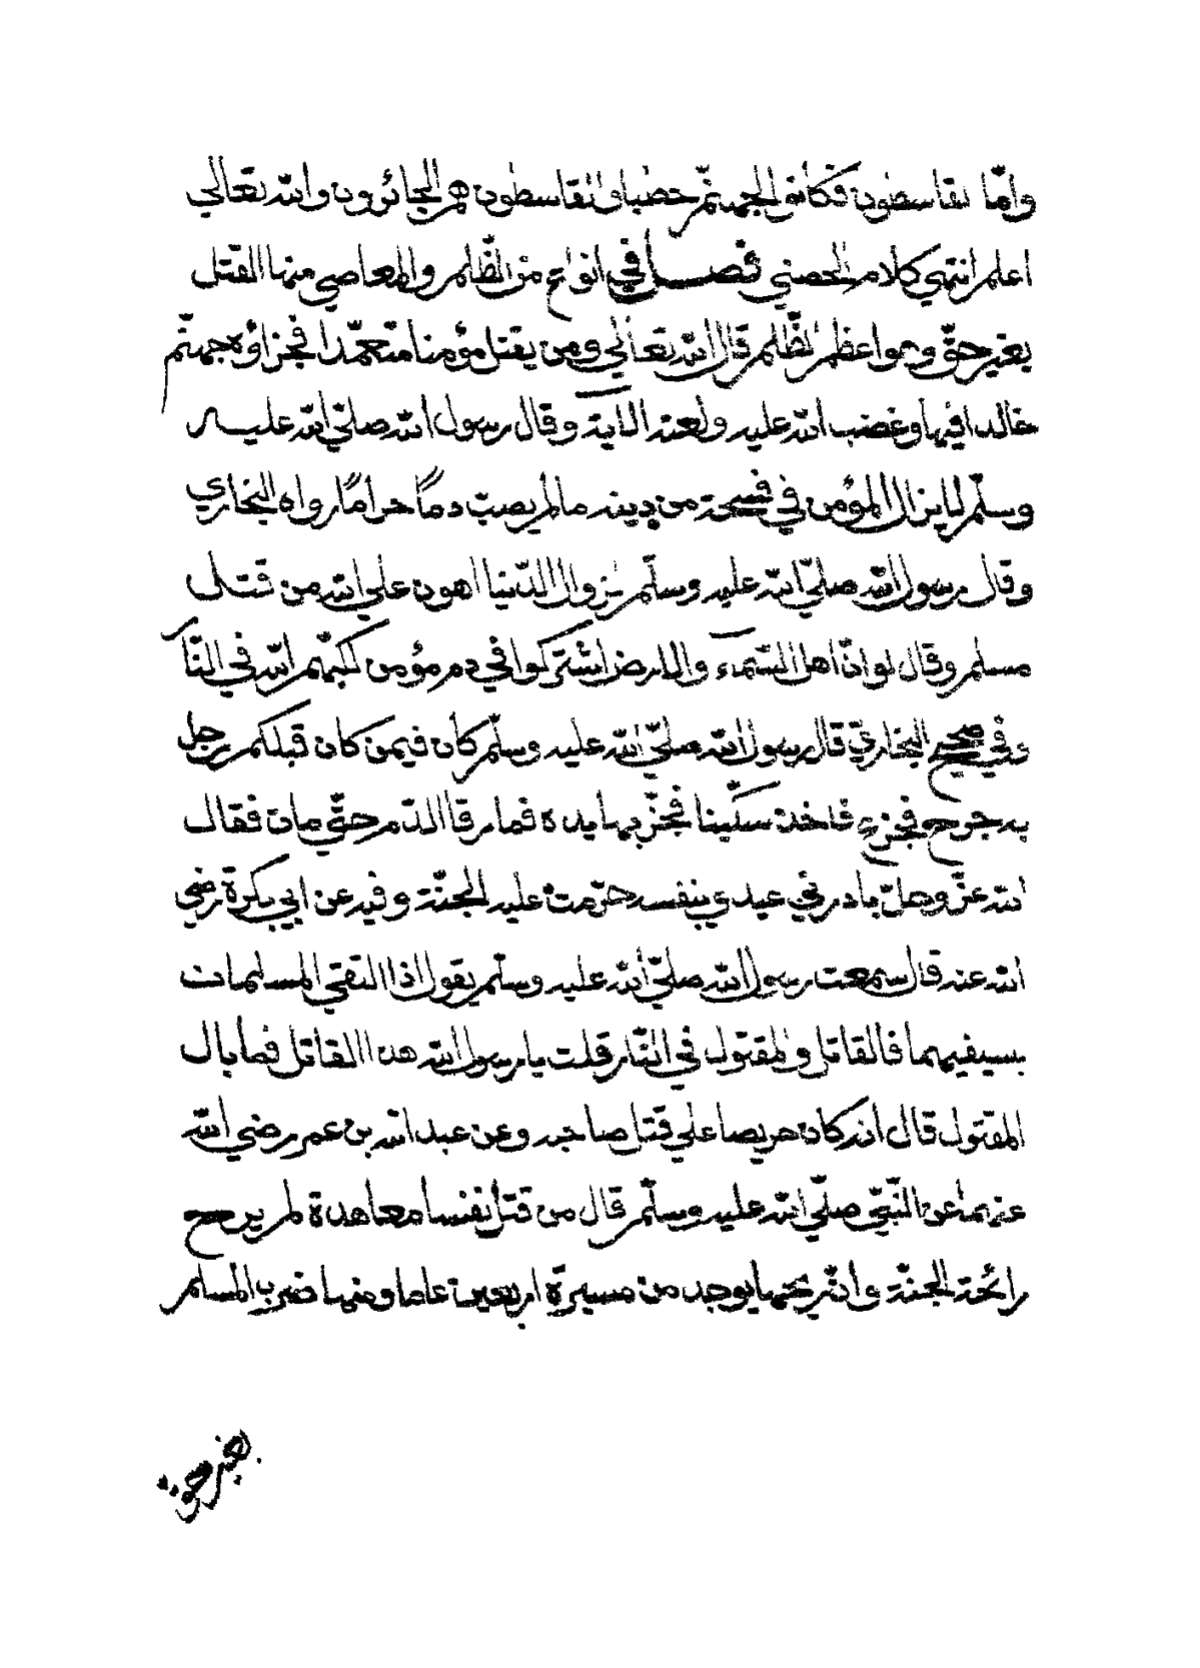 وامّا القاسطون فكانوا لجهنّم حطبا والقاسطون هم الجائرون والله تعالي
اعلم انتهي كلام الحصني فصل في انواع من الظّلم والمعاصي منها القتل
بغير حقّ وهو اعظم الظّلم قال الله تعالي ومن يقتل مؤمنا متعمّدا فجزاؤه جهنّم
خالدا فيها وغضب الله عليه ولعنه الآية وقال رسول الله صلّي الله عليه
وسلّم لا يزال المؤمن في فسحة من دينه مالم يصبّ دمًا حرامًا رواه البخاري
وقال رسول الله صلّي الله عليه وسلّم لزوال الدّنيا اهون علي الله من قتل
مسلم وقال لو انّ اهل السّمآء والارض اشتركوا في دم مؤمن لكبّهم الله في النّار
وفي صحيح البخاريّ قال رسول الله صلّي الله عليه وسلّم كان فيمن كان قبلكم رجل
به جرح فجزع فاخذ سكّينا فجزّ بها يده فما رقا الدّم حتّي مات فقال
الله عزّ وجلّ بادرني عبدي بنفسه حرّمت عليه الجنّة وفيه عن ابي بكرة رضي
الله عنه قال سمعت رسول الله صلّي الله عليه وسلّم يقول اذا التقي المسلمان
بسيفيهما فالقاتل والمقتول في النّار قلت يا رسول الله هذا القاتل فما بال
المقتول قال انه كان حريصا علي قتل صاحبه وعن عبد الله بن عمر رضي الله
عنهما عن النّبيّ صلّي الله عليه وسلّم قال من قتل نفسا معاهدة لم يرح
رائحة الجنّة وانّ ريحها يوجد من مسيرة اربعين عاما ومنها ضرب المسلم
بغير حق